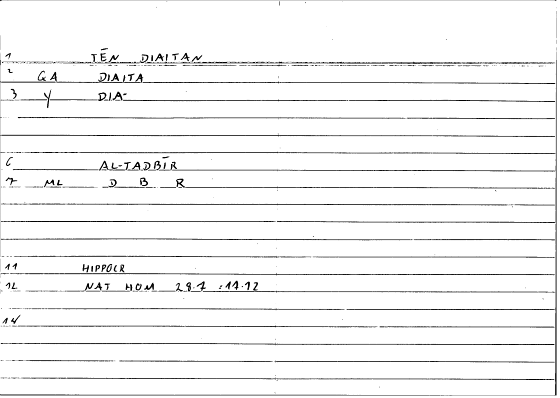 1 TĒN DIAITAN
2 GA DIAITA
3 Y DIA-
6 AL-TADBĪR
7 ML D B R
11 HIPPOCR
12 NAT HOM 28.1 :11.12
14